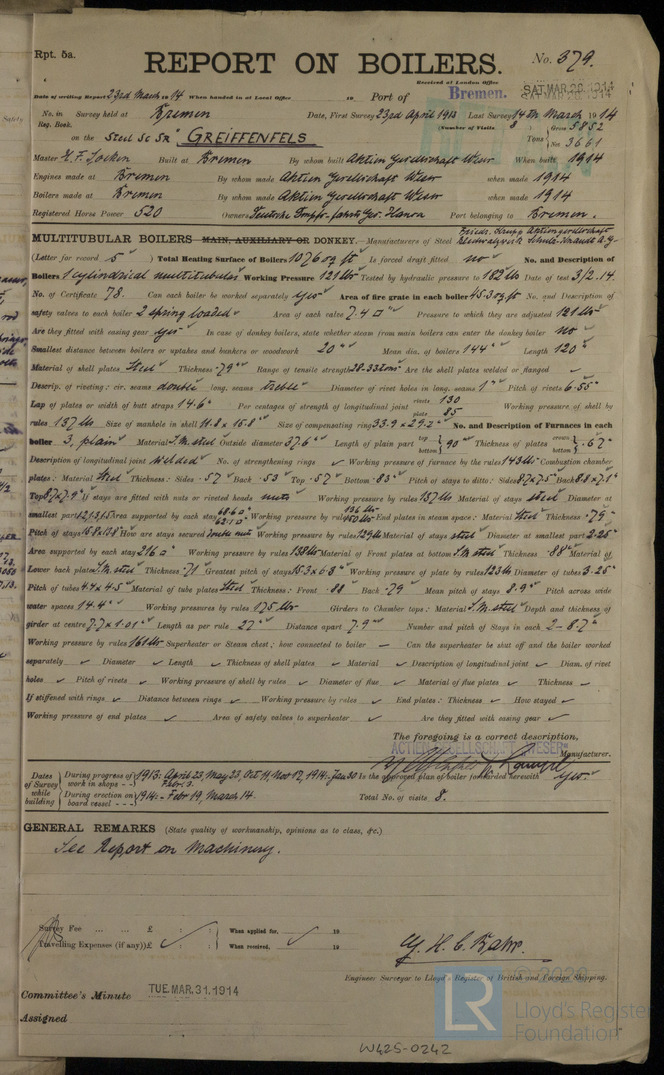 Rpt. 5a.
REPORT ON BOILERS.
No. 379.
Received at London Office
SAT. MAR. 28. 1914
Date of writing Report 23rd March 1914 When handed in at Local Office 19 Port of Bremen.
No. in Reg. Book. Survey held at Bremen Date, First Survey 23rd April 1913 Last Survey 14th March 1914
(Number of Visits 8) Gross 5852
on the Steel Sc Sr "GREIFFENFELS" Tons Net 3661
Master Built at Bremen By whom built Aktien Gesellschaft Weser When built 1914
Engines made at Bremen By whom made Aktien Gesellschaft Weser when made 1914
Boilers made at Bremen By whom made Aktien Gesellschaft Weser when made 1914
Registered Horse Power 520 Owners Port belonging to Bremen.
MULTITUBULAR BOILERS MAIN, AUXILIARY OR DONKEY.—Manufacturers of Steel Friedr. Krupp Aktiengesellschaft
(Letter for record S) Total Heating Surface of Boilers 1076 sq ft Is forced draft fitted no No. and Description of
Boilers 1 cylindrical multitubular Working Pressure 121 lbs Tested by hydraulic pressure to 182 lbs Date of test 3/2.14.
No. of Certificate 78. Can each boiler be worked separately yes Area of fire grate in each boiler 45.3 sq ft No. and Description of
safety valves to each boiler 2 spring loaded Area of each valve 7.4 □" Pressure to which they are adjusted 121 lbs
Are they fitted with easing gear yes In case of donkey boilers, state whether steam from main boilers can enter the donkey boiler no
Smallest distance between boilers or uptakes and bunkers or woodwork 20" Mean dia. of boilers 144" Length 120"
Material of shell plates Steel Thickness .79" Range of tensile strength 28-33 tons Are the shell plates welded or flanged ✓
Descrip. of riveting: cir. seams double long. seams treble Diameter of rivet holes in long. seams 1" Pitch of rivets 6.55"
Lap of plates or width of butt straps 14.6" Per centages of strength of longitudinal joint rivets 130 plate 85 Working pressure of shell by
rules 137 lbs Size of manhole in shell 11.8 x 15.8" Size of compensating ring 33.9 x 29.2" No. and Description of Furnaces in each
boiler 3, plain Material S.M. steel Outside diameter 37.6" Length of plain part top bottom 90" Thickness of plates crown bottom .67"
Description of longitudinal joint welded No. of strengthening rings ✓ Working pressure of furnace by the rules 143 lbs Combustion chamber
plates: Material Steel Thickness: Sides .57" Back .53" Top .57" Bottom .83" Pitch of stays to ditto: Sides 8.7 x 7.5" Back 8.8 x 7.1"
Top 8.7 x 7.9" If stays are fitted with nuts or riveted heads nuts Working pressure by rules 137 lbs Material of stays steel Diameter at
smallest part Area supported by each stay Working pressure by rules End plates in steam space: Material Steel Thickness .79"
Pitch of stays How are stays secured double nuts Working pressure by rules 129 lbs Material of stays steel Diameter at smallest part 2.25"
Area supported by each stay 216 □" Working pressure by rules 138 lbs Material of Front plates at bottom S.M. steel Thickness .88" Material of
Lower back plate S.M. steel Thickness .71 Greatest pitch of stays 15.3 x 6.3" Working pressure of plate by rules 123 lbs Diameter of tubes 3.25"
Pitch of tubes 4.4 x 4.5" Material of tube plates Steel Thickness: Front .88 Back .79 Mean pitch of stays 8.9" Pitch across wide
water spaces 14.4" Working pressures by rules 175 lbs Girders to Chamber tops: Material S.M. steel Depth and thickness of
girder at centre 7.7 x 1.01" Length as per rule 27" Distance apart 7.9" Number and pitch of Stays in each 2 – 8.7"
Working pressure by rules 161 lbs Superheater or Steam chest; how connected to boiler — Can the superheater be shut off and the boiler worked
separately ✓ Diameter ✓ Length ✓ Thickness of shell plates ✓ Material ✓ Description of longitudinal joint ✓ Diam. of rivet
holes ✓ Pitch of rivets ✓ Working pressure of shell by rules ✓ Diameter of flue ✓ Material of flue plates ✓ Thickness ✓
If stiffened with rings ✓ Distance between rings ✓ Working pressure by rules ✓ End plates: Thickness ✓ How stayed ✓
Working pressure of end plates ✓ Area of safety valves to superheater ✓ Are they fitted with easing gear ✓
The foregoing is a correct description,
ACTIEN GESELLSCHAFT "WESER" Manufacturer.
Dates of Survey while building
During progress of work in shops - - 1913: April 23, May 23, Oct 11, Nov 17, 1914: Jan 30 Febr 3. Is the approved plan of boiler forwarded herewith yes
During erection on board vessel - - - 1914: - Febr 19, March 14. Total No. of visits 8.
GENERAL REMARKS (State quality of workmanship, opinions as to class, &c.)
See Report on Machinery.
Survey Fee ... ... £ : : When applied for, 19
Travelling Expenses (if any) £ : : When received, 19
Engineer Surveyor to Lloyd's Register of British and Foreign Shipping.
Committee's Minute TUE. MAR. 31. 1914
Assigned
© 2020
LR
Lloyd's Register
Foundation
W425-0242